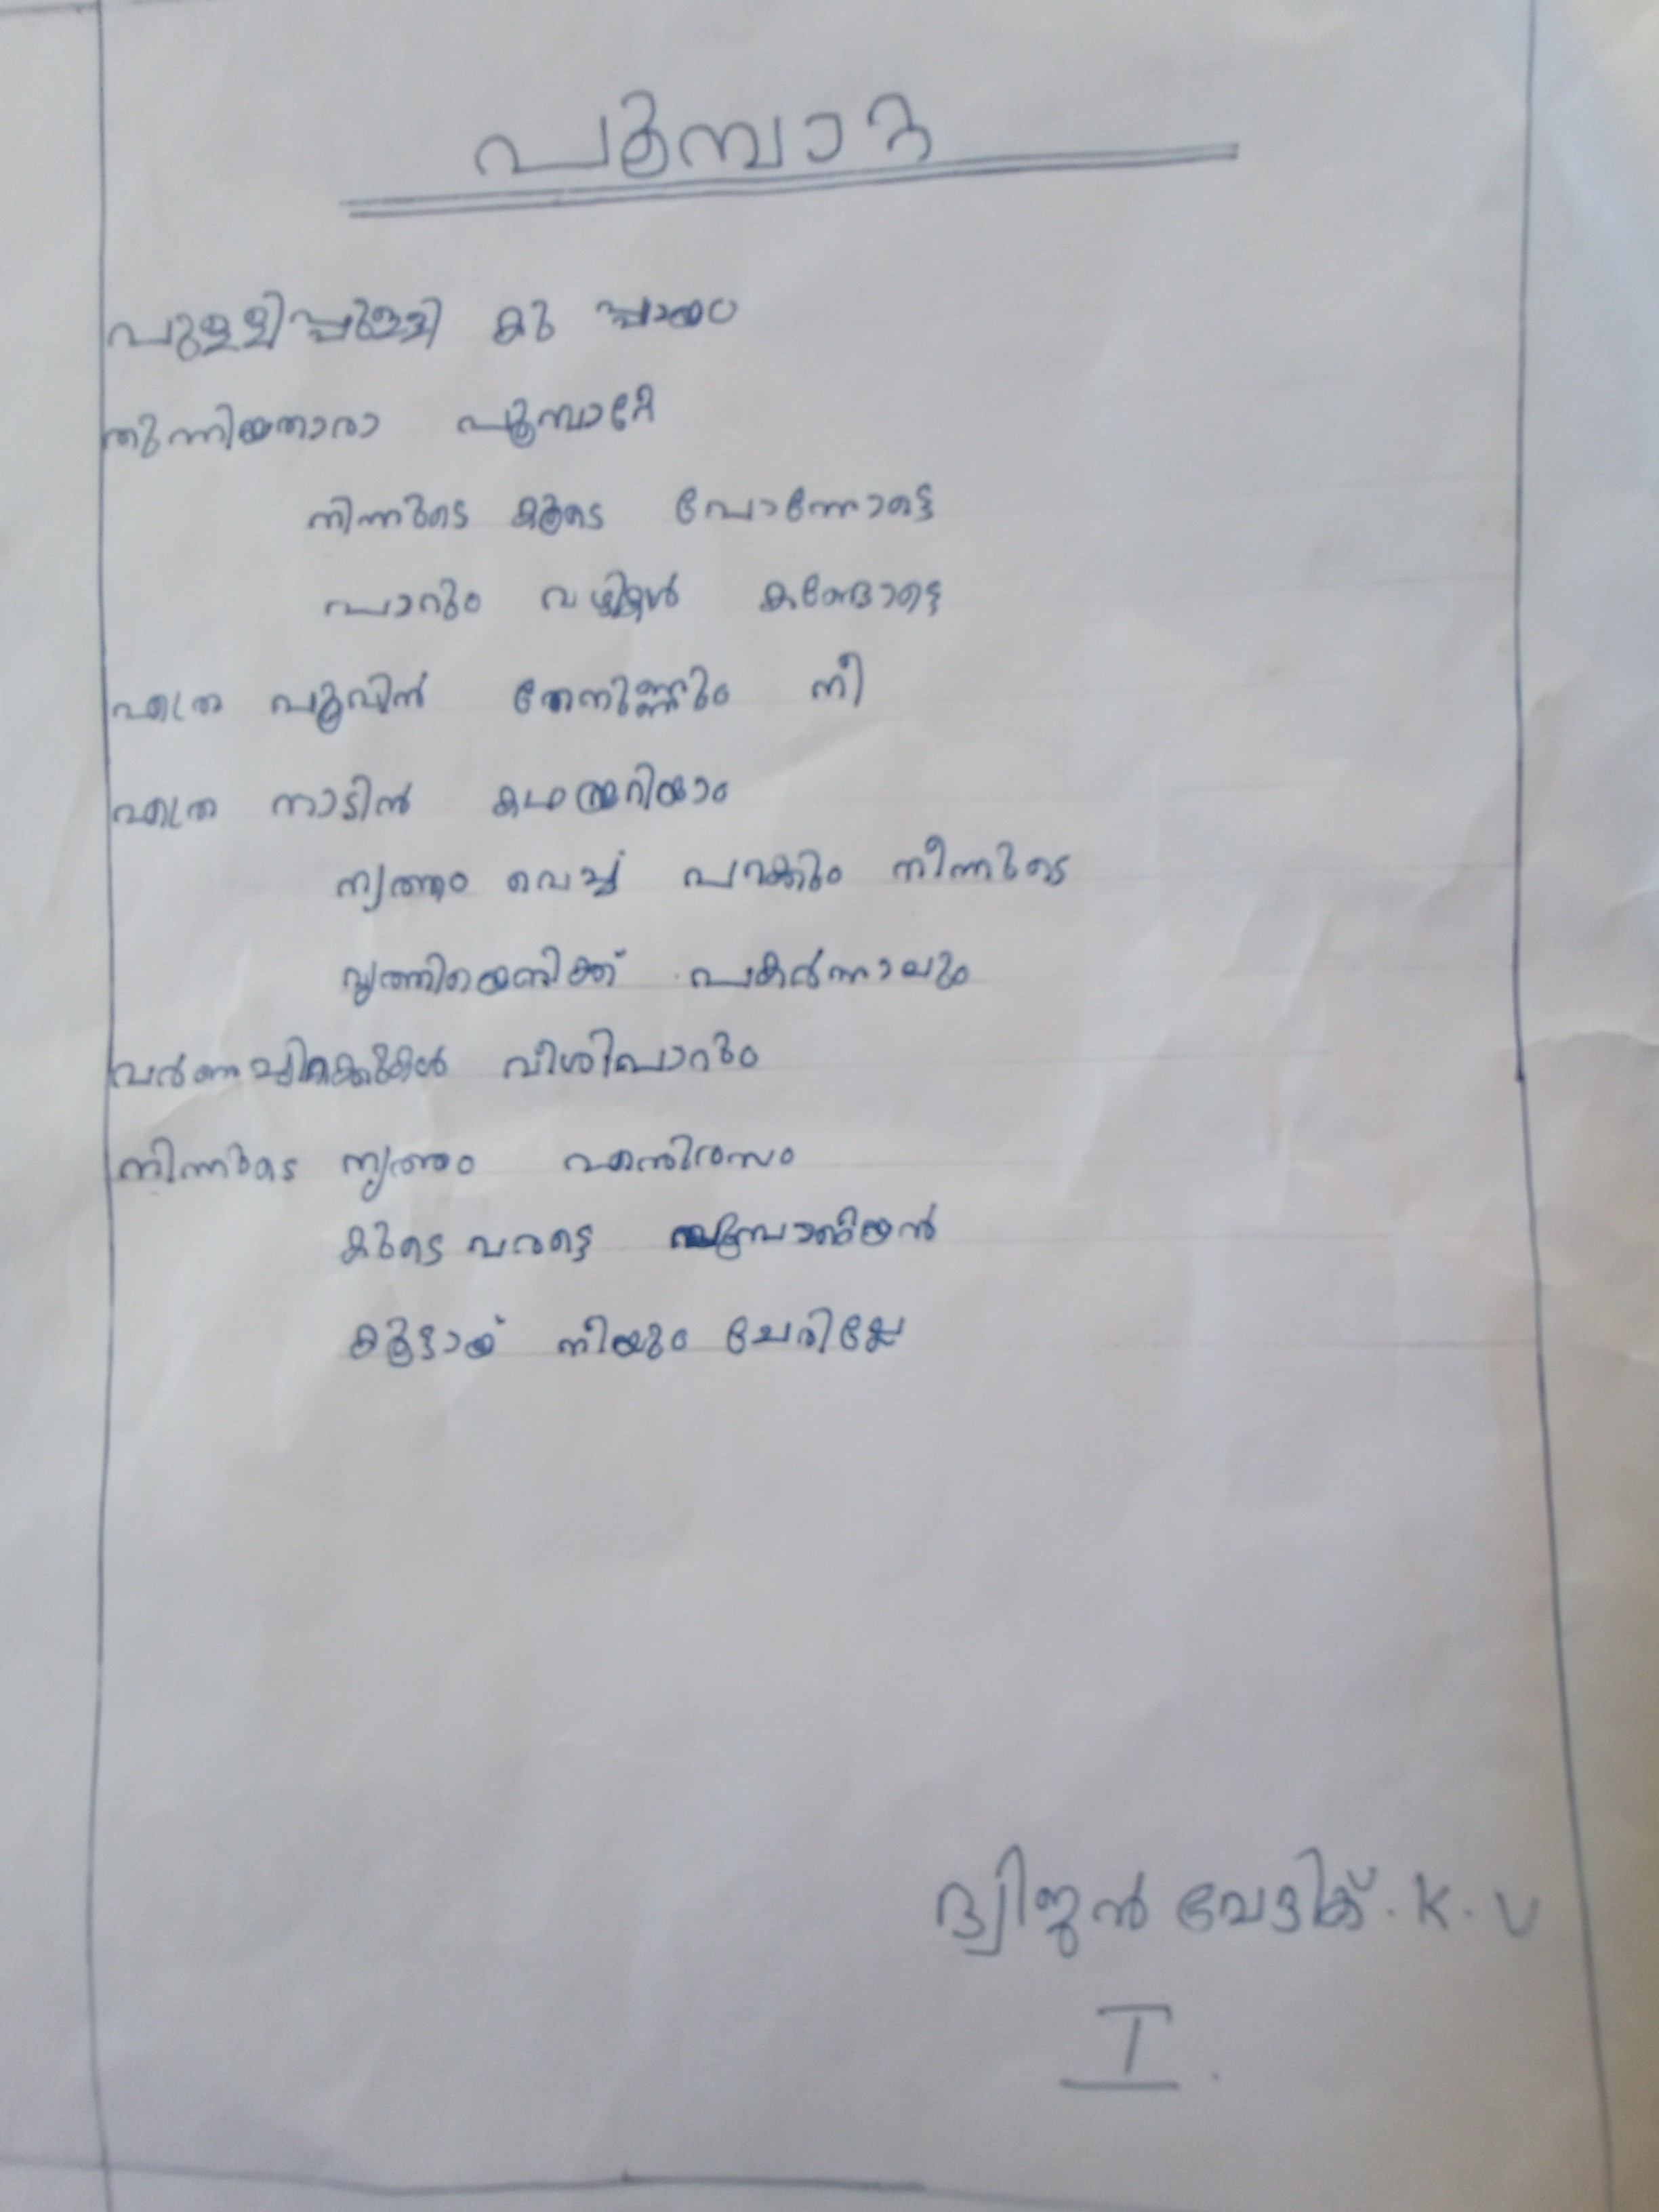 പൂമ്പാറ്റ
പുള്ളിപ്പുള്ളി കു പ്പായം
തുന്നിയതാരാ പൂമ്പാറ്റേ
നിന്നുടെ കൂടെ പോന്നോട്ടെ
പാറും വഴികൾ കണ്ടോട്ടെ
എത്ര പൂവിൻ തേനുണ്ണും നീ
എത്ര നാടിൻ കഥയറിയാം
നൃത്തം വെച്ച് പറക്കും നിന്നുടെ
വൃത്തിയെനിക്ക് പകർന്നാലും
വർണ്ണച്ചിറകുകൾ വീശിപാറും
നിന്നുടെ നൃത്തം എന്തിരസം
കുടെ വരട്ടെ
കൂട്ടായ് നീയും ചേരില്ലേ
ദ്വിജൻ വേദിക്. K. V
I.